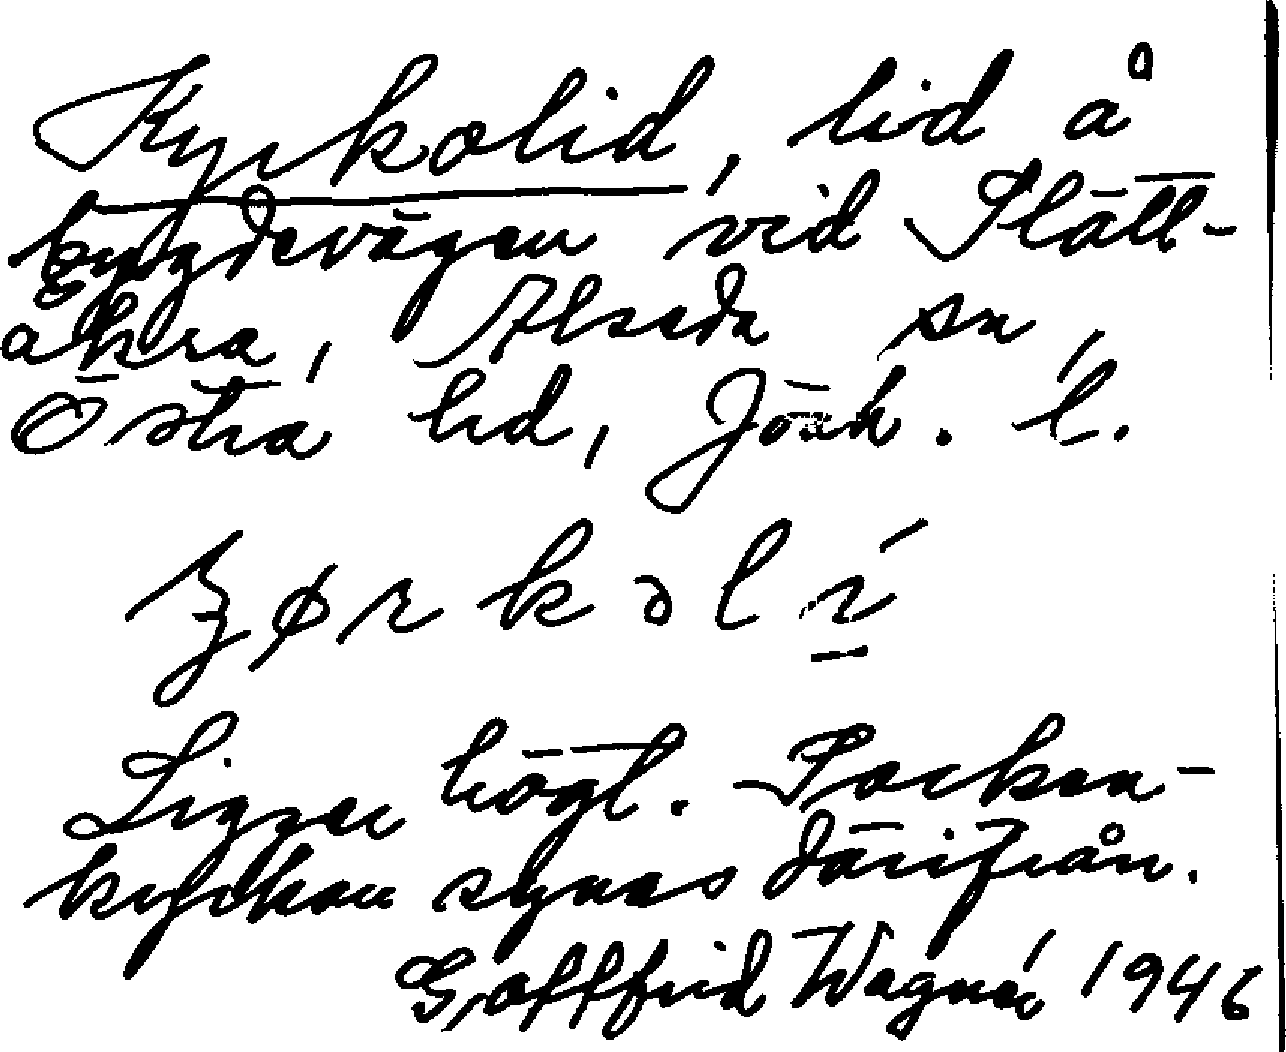 Kyrkolid, lid å
bygdevägen vid Slätt-
åkra, Alseda sn,
Östra hd, Jönk. l.
Ligger högt. Socken-
kyrkan synes därifrån.
Gottfrid Wagnér 1946